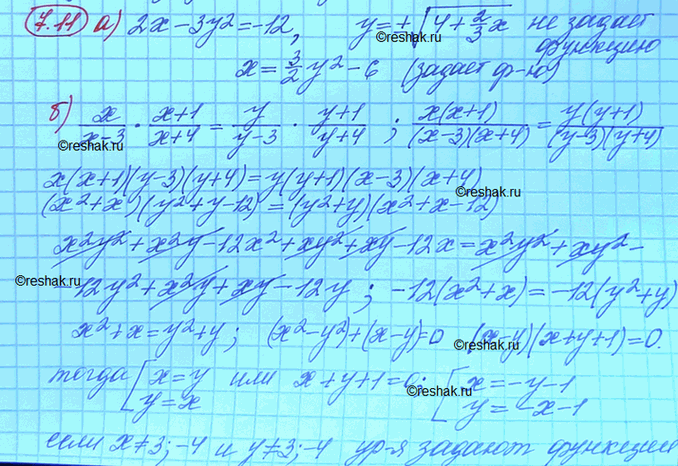 7.11 а) 2x - 3y² = -12, y = ±√(4 + 2/3 x) не задает функцию
x = 3/2 y² - 6 (задает ф-ю)
б) x/(x-3) · (x+1)/(x+4) = y/(y-3) · (y+1)/(y+4) ; x(x+1)/((x-3)(x+4)) = y(y+1)/((y-3)(y+4))
©reshak.ru
x(x+1)(y-3)(y+4) = y(y+1)(x-3)(x+4)
©reshak.ru
(x²+x)(y²+y-12) = (y²+y)(x²+x-12)
x²y² + x²y - 12x² + xy² + xy - 12x = x²y² + xy² -
©reshak.ru
- 12y² + x²y + xy - 12y ; -12(x²+x) = -12(y²+y)
x²+x = y²+y ; (x²-y²)+(x-y)=0 (x-y)(x+y+1)=0.
©reshak.ru
тогда [x=y или x+y+1=0; [x=-y-1
y=x y=-x-1
©reshak.ru
если x≠3;-4 и y≠3;-4 ур-я задают функции